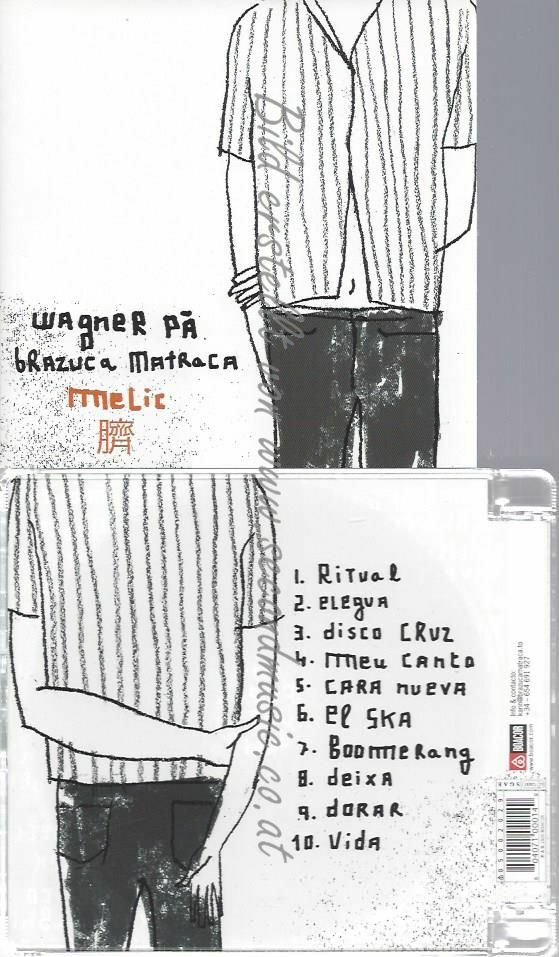 wagner Pá
brazuca matraca
melic
臍
1. Ritual
2. elegua
3. disco CRUZ
4. meu canto
5. CARA nueva
6. el SKA
7. Boomerang
8. deixa
9. dorar
10. Vida
Info & contacto:
+34 - 654 691 927
BOACOR
www.boacor.com
Bild erstellt von www.secondmusic.co.at